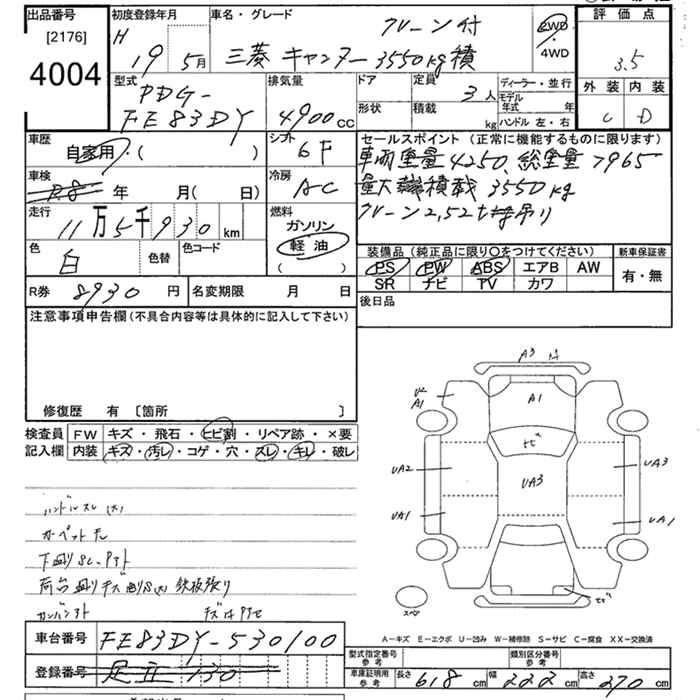 出品番号
[2176]
4004
初度登録年月
H 19 5月
車名・グレード
クレーン付
三菱 キャンター 3550kg積
2WD
4WD
評価点
3.5
外装 内装
C D
型式
PDG-
FE83DY
排気量
4900 cc
ドア
形状
定員
3人
積載
kg
ディーラー・並行
モデル年式 年
ハンドル 左・右
車歴
自家用・( )
シフト
6F
セールスポイント (正常に機能するものに限ります)
車両重量4250、総重量7965
最大積載 3550kg
クレーン2,52t
車検
年 月( 日)
冷房
AC
走行
11万5千930 km
燃料
ガソリン
軽油
( )
色
白
色替
色コード
装備品 (純正品に限り〇をつけてください)
PS PW ABS エアB AW
SR ナビ TV カワ
新車保証書
有・無
R券 8930 円
名変期限 月 日
後日品
注意事項申告欄 (不具合内容等は具体的に記入して下さい)
修復歴 有 〔箇所 〕
検査員記入欄
FW キズ・飛石・ヒビ割・リペア跡・×要
内装 キズ・汚レ・コゲ・穴・スレ・キレ・破レ
ハンドルスレ
カーペット
荷台
A3
A1
U2
A1
UA2
UA3
UA3
UA1
UA1
スペア
A-キズ E-エクボ U-凹み W-補修跡 S-サビ C-腐食 XX-交換済
車台番号 FE83DY-530100
登録番号 足立 130
型式指定番号
参考
類別区分番号
参考
車庫証明用
参考
長さ 618 cm
幅 222 cm
高さ 270 cm